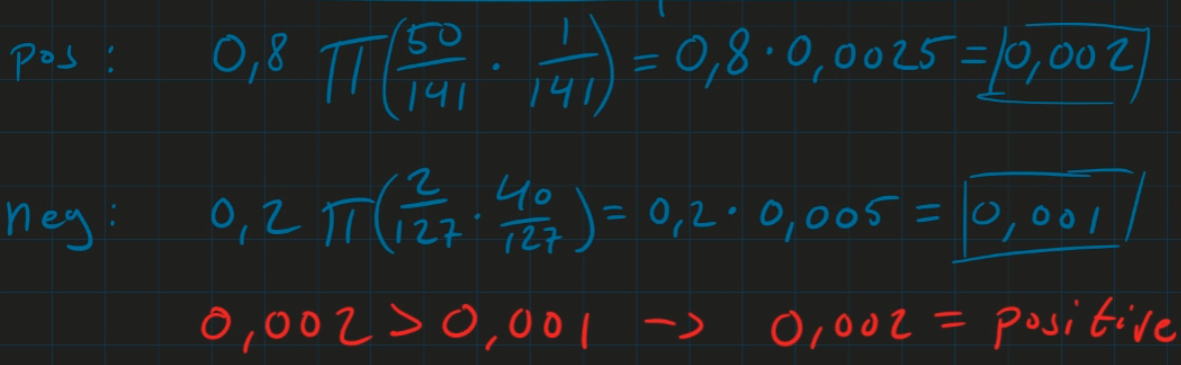 pos: 0,8 π(50/141 · 1/141) = 0,8 · 0,0025 = 0,002
neg: 0,2 π(2/127 · 40/127) = 0,2 · 0,005 = 0,001
0,002 > 0,001 -> 0,002 = positive